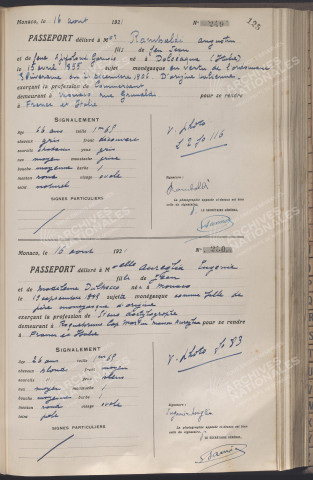 Monaco, le 16 avril 1921 N° 249
325
PASSEPORT délivré à Mr Rambaldi Augustin
fils de feu Jean
et de feue né à Dolceacqua (Italie)
le 15 avril 1855, sujet monégasque en vertu de l'ordonnance
Souveraine du 2 décembre 1896. D'origine italienne,
exerçant la profession de Commerçant
demeurant à Monaco rue Grimaldi pour se rendre
à France et Italie
SIGNALEMENT
âge 66 ans taille 1m68
cheveux gris front découvert
sourcils yeux gris
nez moyen moustache grise
bouche moyenne barbe /
menton rond visage ovale
teint naturel
SIGNES PARTICULIERS
/
V. photo
Signature :
Rambaldi
La photographie apposée ci-dessus est bien
celle du signataire.
LE SECRÉTAIRE GÉNÉRAL,
Monaco, le 16 avril 1921 N° 250
PASSEPORT délivré à Melle Aureglia Eugénie
fille de Jean
et de Madeleine née à Monaco
le 19 septembre sujette monégasque comme fille de
père monégasque d'origine
exerçant la profession de Sténo dactylographe
demeurant à Roquebrune Cap Martin maison Aureglia pour se rendre
à France et Italie
SIGNALEMENT
âge 26 ans taille 1m
cheveux blonds front moyen
sourcils yeux bleus
nez moyen moustache /
bouche moyenne barbe /
menton rond visage ovale
teint pâle
SIGNES PARTICULIERS
/
V. photo
Signature :
La photographie apposée ci-dessus est bien
celle du signataire.
LE SECRÉTAIRE GÉNÉRAL,